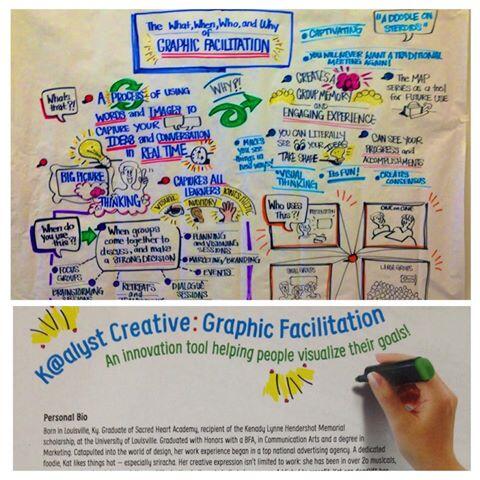 The What, When, Who, and Why
of
GRAPHIC FACILITATION
• CAPTIVATING
"A DOODLE ON
STEROIDS"
• YOU WILL NEVER WANT A TRADITIONAL
MEETING AGAIN!
Whats
that?!
• A PROCESS OF USING
WORDS AND IMAGES TO
CAPTURE YOUR
IDEAS AND CONVERSATION
IN REAL TIME
WHY?!
• CREATES A
GROUP MEMORY
AND
ENGAGING EXPERIENCE
• The MAP
SERVES AS A TOOL
FOR FUTURE USE
• MAKES
YOU SEE
things in
new ways!
• YOU CAN LITERALLY
SEE YOUR IDEAS
TAKE SHAPE
• CAN SEE YOUR
PROGRESS AND
ACCOMPLISHMENTS
• VISUAL
THINKING
• Its FUN!
• CREATES
CONSENSUS
BIG PICTURE
THINKING
• CAPTURES ALL
LEARNERS
VISUAL
AUDITORY
When do you
use this?!
• When groups
come together to
discuss, and make
a STRONG DECISION
• PLANNING
and VISIONING
SESSIONS
• MARKETING/BRANDING
• EVENTS
• FOCUS
GROUPS
BRAINSTORMING
• RETREATS
AND
• DIALOGUE
SESSIONS
Who uses
This?!
PRESENTATION
ONE ON ONE
SMALL GROUPS
LARGE GROUPS
K@alyst Creative: Graphic Facilitation
An innovation tool helping people visualize their goals!
Personal Bio
Born in Louisville, Ky. Graduate of Sacred Heart Academy, recipient of the Kenady Lynne Hendershot Memorial
scholarship, at the University of Louisville. Graduated with Honors with a BFA, in Communication Arts and a degree in
Marketing. Catapulted into the world of design, her work experience began in a top national advertising agency. A dedicated
foodie, Kat likes things hot – especially sriracha. Her creative expression isn't limited to work: she has been in over 20 musicals,